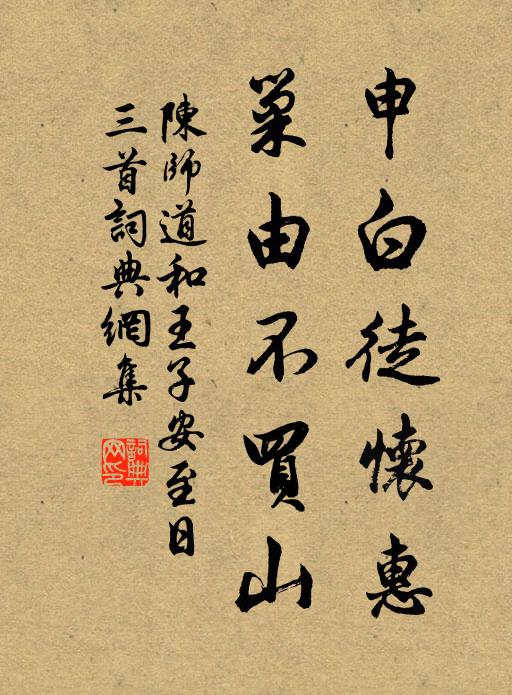 申白徒懷惠
巢由不買山
陳師道和王子安至日
三首詞典網集
詞典網印